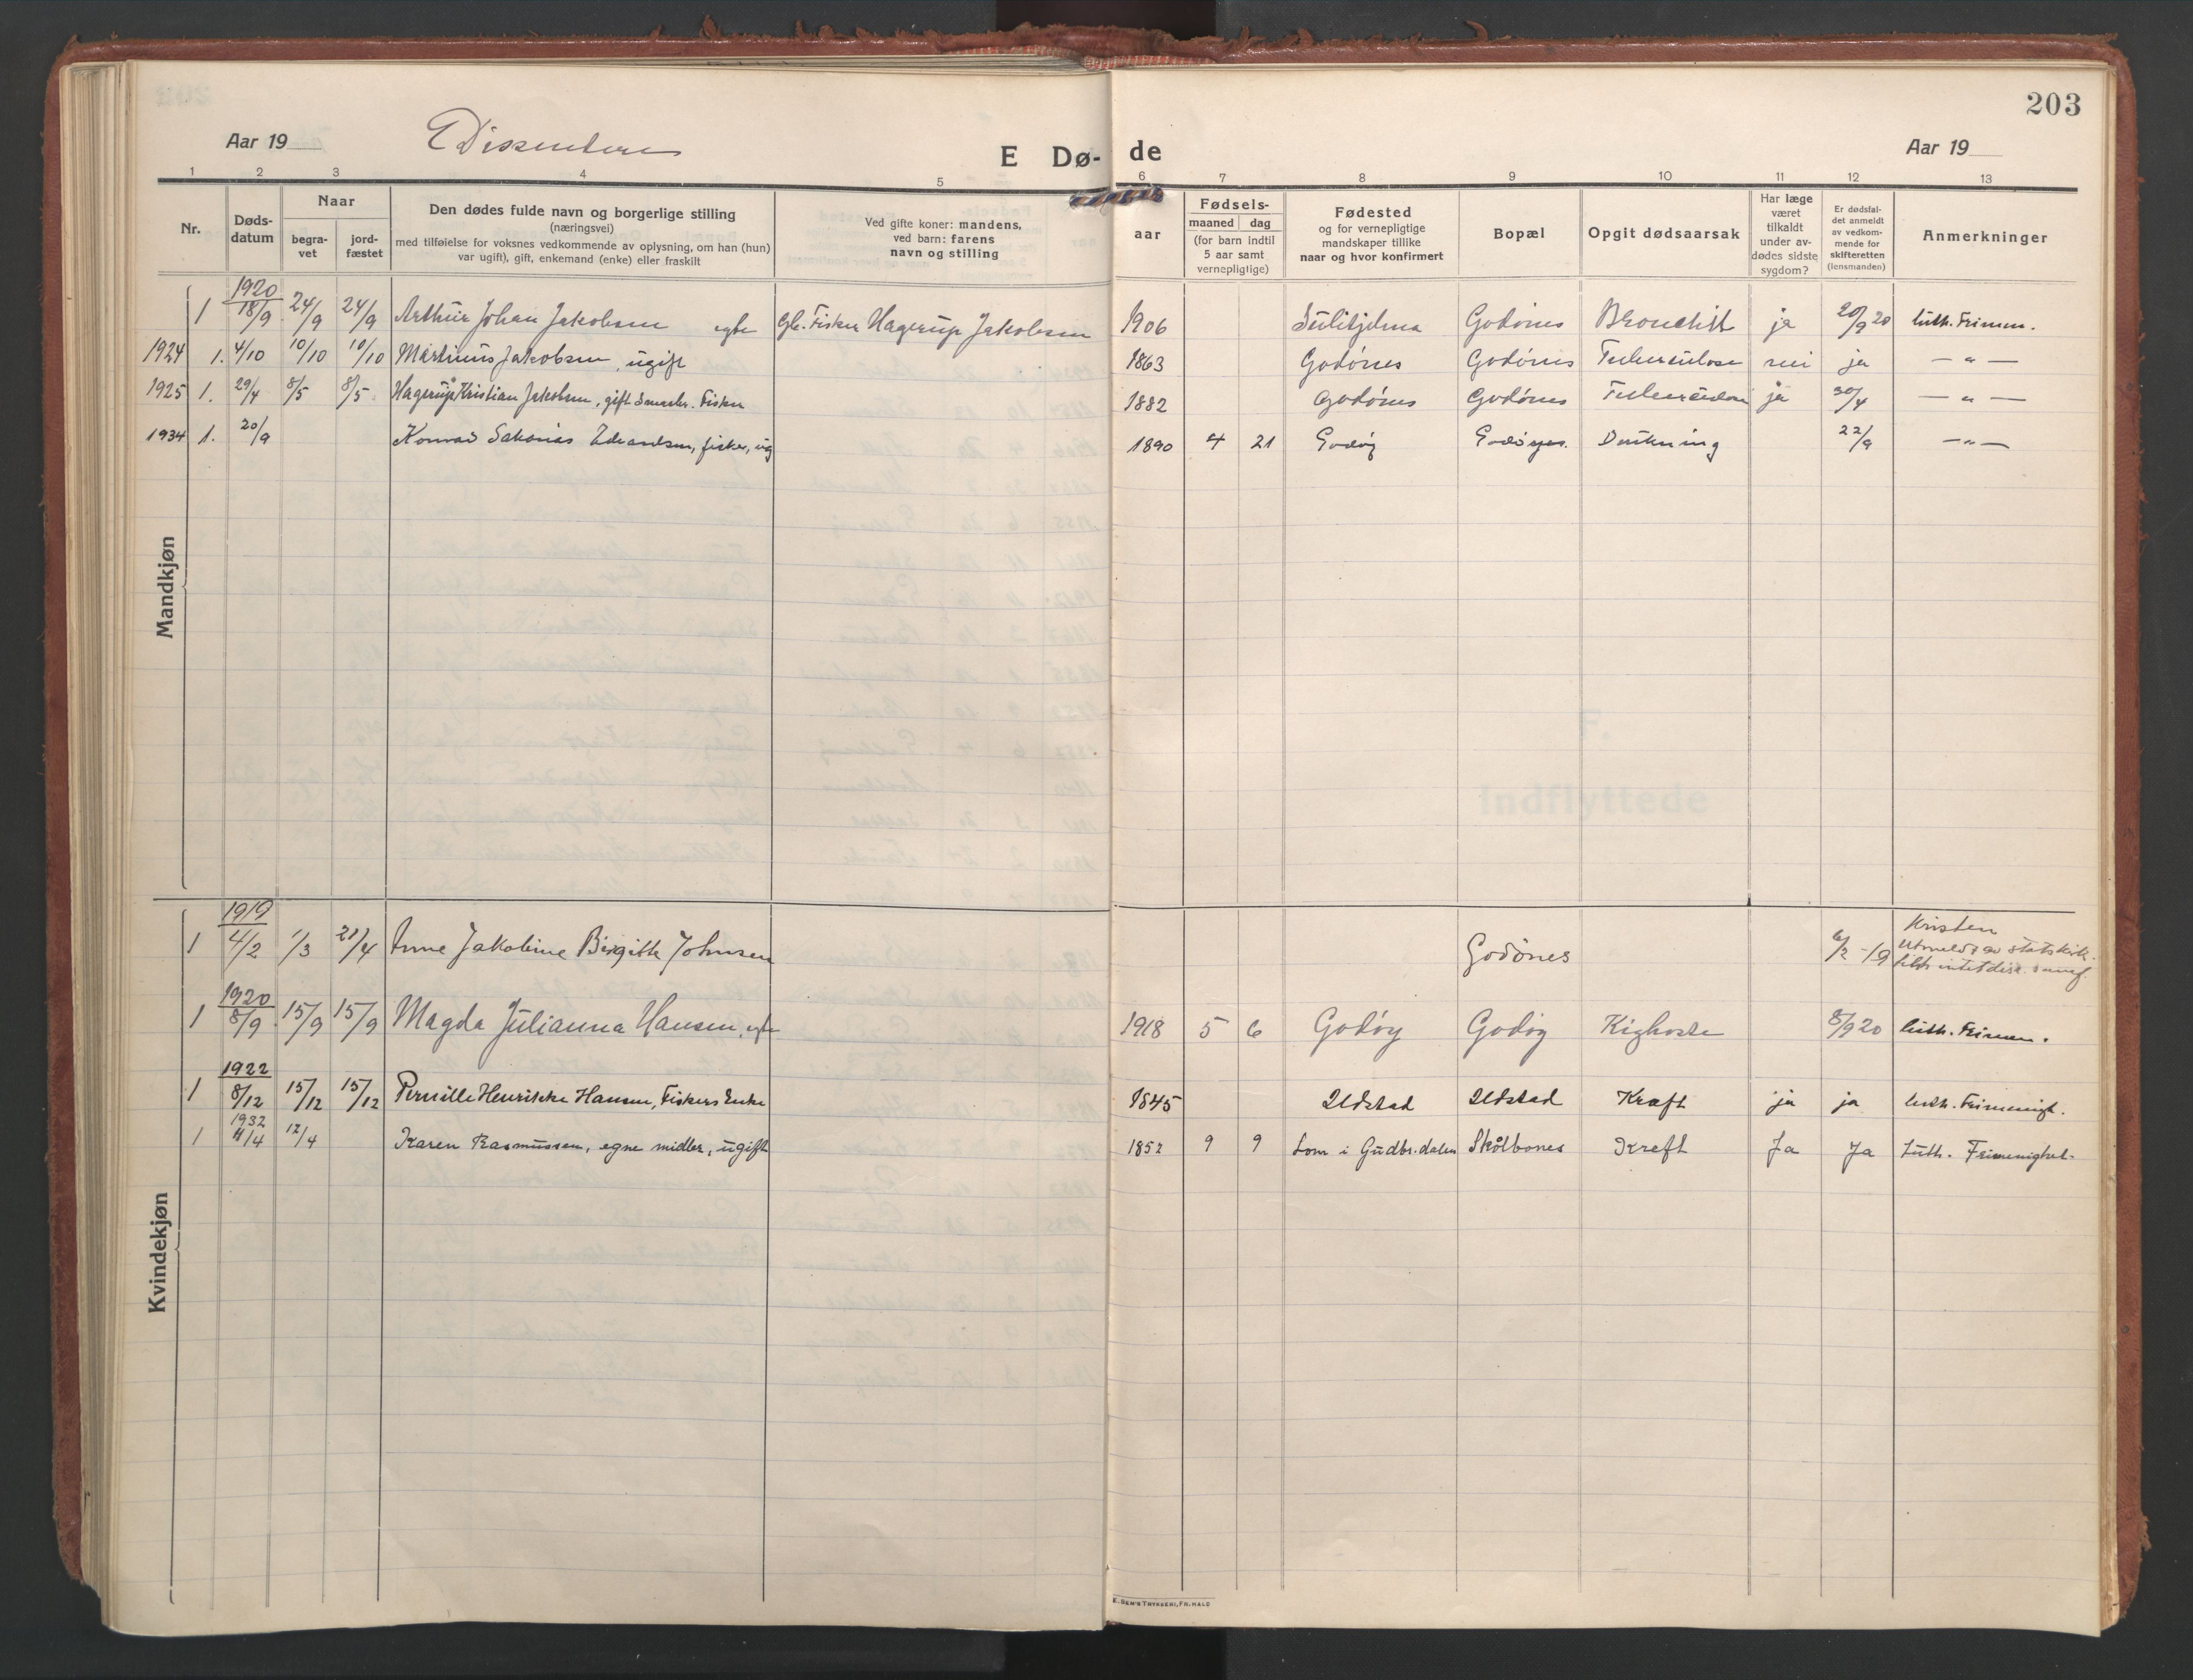 203
Aar 19
Dissentere
E Dø-
de
Aar 19
1 2 3 4 5 6 7 8 9 10 11 12 13
Nr.
Døds-
datum
Naar
begra-
vet
jord-
fæstet
Den dødes fulde navn og borgerlige stilling
(næringsvei)
med tilføielse for voksnes vedkommende av oplysning, om han (hun)
var ugift), gift, enkemand (enke) eller fraskilt
Ved gifte koner: mandens,
ved barn: farens
navn og stilling
aar
Fødsels-
maaned dag
(for barn indtil
5 aar samt
vernepligtige)
Fødested
og for vernepligtige
mandskaper tillike
naar og hvor konfirmert
Bopæl
Opgit dødsaarsak
Har læge
været
tilkaldt
under av-
dødes sidste
sygdom?
Er dødsfal-
det anmeldt
av vedkom-
mende for
skifteretten
(lensmanden)
Anmerkninger
Mandkjøn
1920
1 18/9 24/9 24/9 Arthur Johan Jakobsen egbe Gbr. Fisker Hagerup Jakobsen 1906 Sulitjelma Godönes Bronchit ja 20/9 20 luth. Frimen.
1924 1. 4/10 10/10 10/10 Martinus Jakobsen, ugift 1863 Godönes Godönes Tuberculose nei ja — " —
1925 1. 29/4 8/5 8/5 Hagerup Kristian Jakobsen, gift Smaabr. Fisker 1882 Godönes Godönes Tuberculose ja 30/4 — " —
1934 1. 20/9 Konrad Sakarias Edvardsen, fisker, ug 1890 4 21 Godöy Godöynes. Drukning 22/9 — " —
Kvindekjøn
1919
1 4/2 1/3 21/4 Anne Jakobine Birgitte Johnsen Godönes 6/2 -19 Kristen
Utmeldt av statskirk.
1920
1 8/9 15/9 15/9 Magda Julianna Hansen, egte 1918 5 6 Godöy Godöy Kighoste 8/9 20 luth. Frimen.
1922
1 8/12 15/12 15/12 Pernille Henrikke Hansen, Fiskers Enke 1845 Udstad Udstad Kræft ja ja luth. Frimenigh.
1932
1 11/4 12/4 Karen Rasmussen, egne midler, ugift 1852 9 9 Lom i Gudbr.dalen Skålbones Kreft Ja Ja Luth. Frimenighet.
F.
Indflyttede